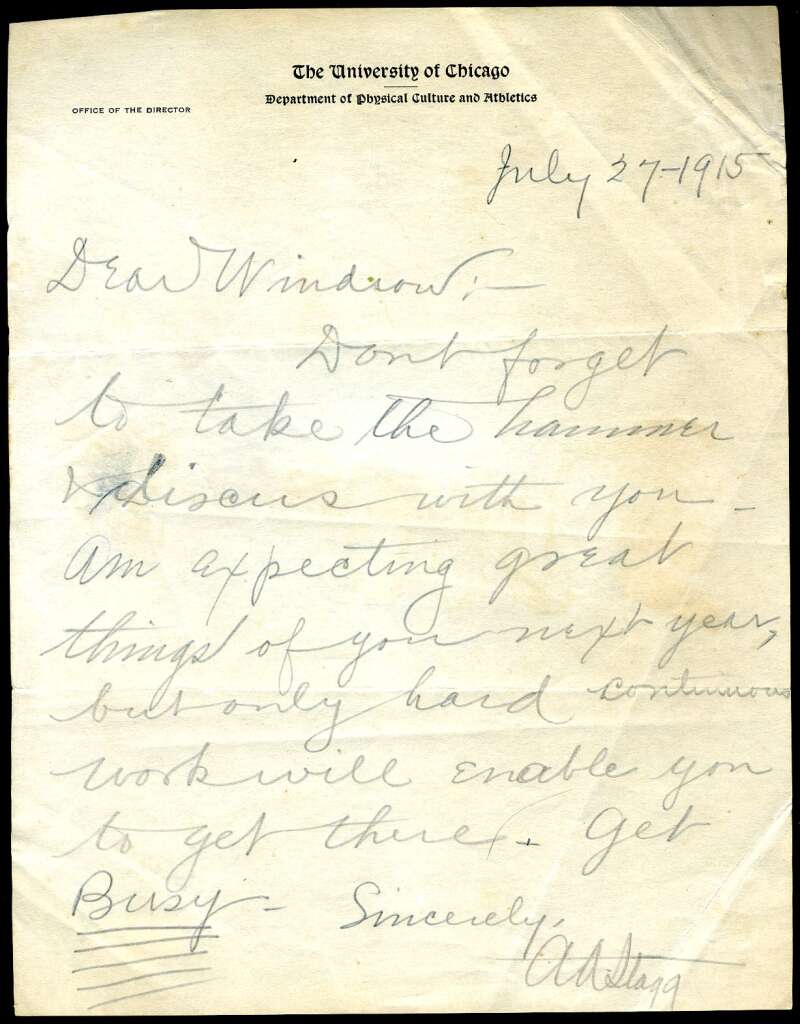 The University of Chicago
Department of Physical Culture and Athletics
OFFICE OF THE DIRECTOR
July 27-1915
Dear Windrow:-
Dont forget
to take the hammer
& discus with you -
Am expecting great
things of you next year,
but only hard continuous
work will enable you
to get there. Get
Busy - Sincerely,
A A Stagg